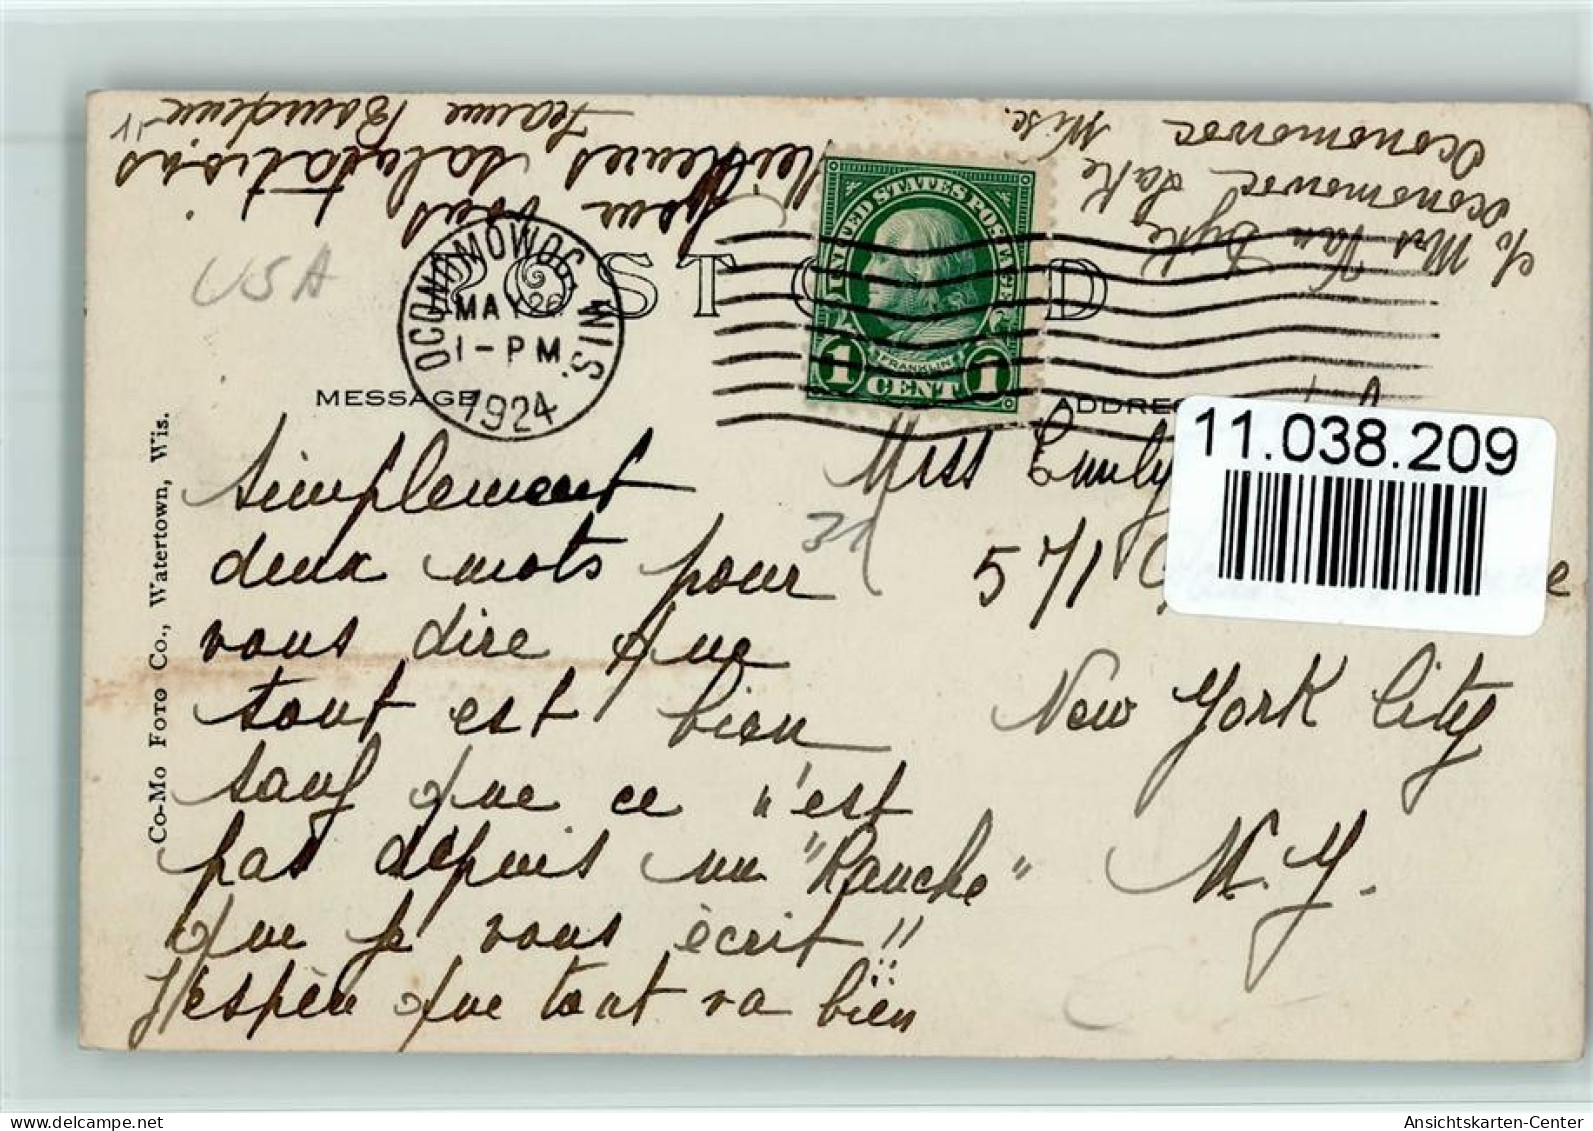 simplement
deux mots pour
vous dire que
tout est bien
sauf que ce n'est
pas depuis un "Ranche"
que je vous écrit!!
J'espère que tout va bien
pour vous
Meilleures salutations
Jeanne
c/o Mrs Van Dyke
Oconomowoc Lake
Oconomowoc Wisc.
USA
POST CARD
OCONOMOWOC, WIS.
MAY 26
1-PM
1924
UNITED STATES POSTAGE
FRANKLIN
1 CENT 1
MESSAGE
ADDRESS
Miss Emily
571
New York City
N.Y.
31
11.038.209
Co-Mo Foto Co., Watertown, Wis.
Ansichtskarten-Center